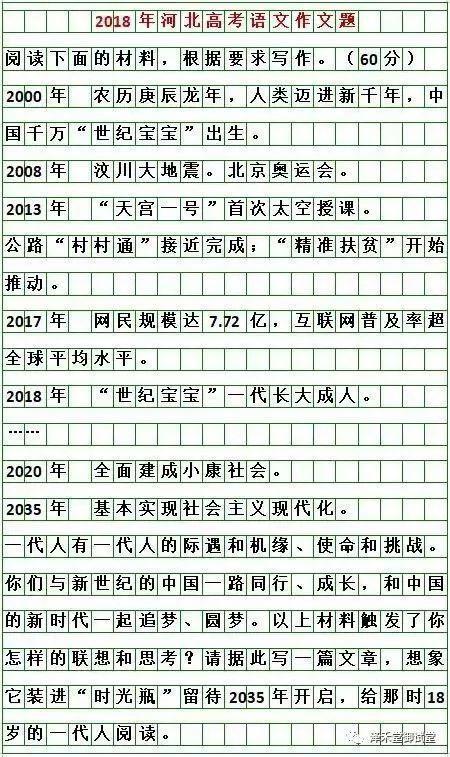 2018年河北高考语文作文题
阅读下面的材料，根据要求写作。（60分）
2000年 农历庚辰龙年，人类迈进新千年，中
国千万“世纪宝宝”出生。
2008年 汶川大地震。北京奥运会。
2013年 “天宫一号”首次太空授课。
公路“村村通”接近完成；“精准扶贫”开始
推动。
2017年 网民规模达7.72亿，互联网普及率超
全球平均水平。
2018年 “世纪宝宝”一代长大成人。
……
2020年 全面建成小康社会。
2035年 基本实现社会主义现代化。
一代人有一代人的际遇和机缘、使命和挑战。
你们与新世纪的中国一路同行、成长，和中国
的新时代一起追梦、圆梦。以上材料触发了你
怎样的联想和思考？请据此写一篇文章，想象
它装进“时光瓶”留待2035年开启，给那时18
岁的一代人阅读。
泽禾堂御试堂